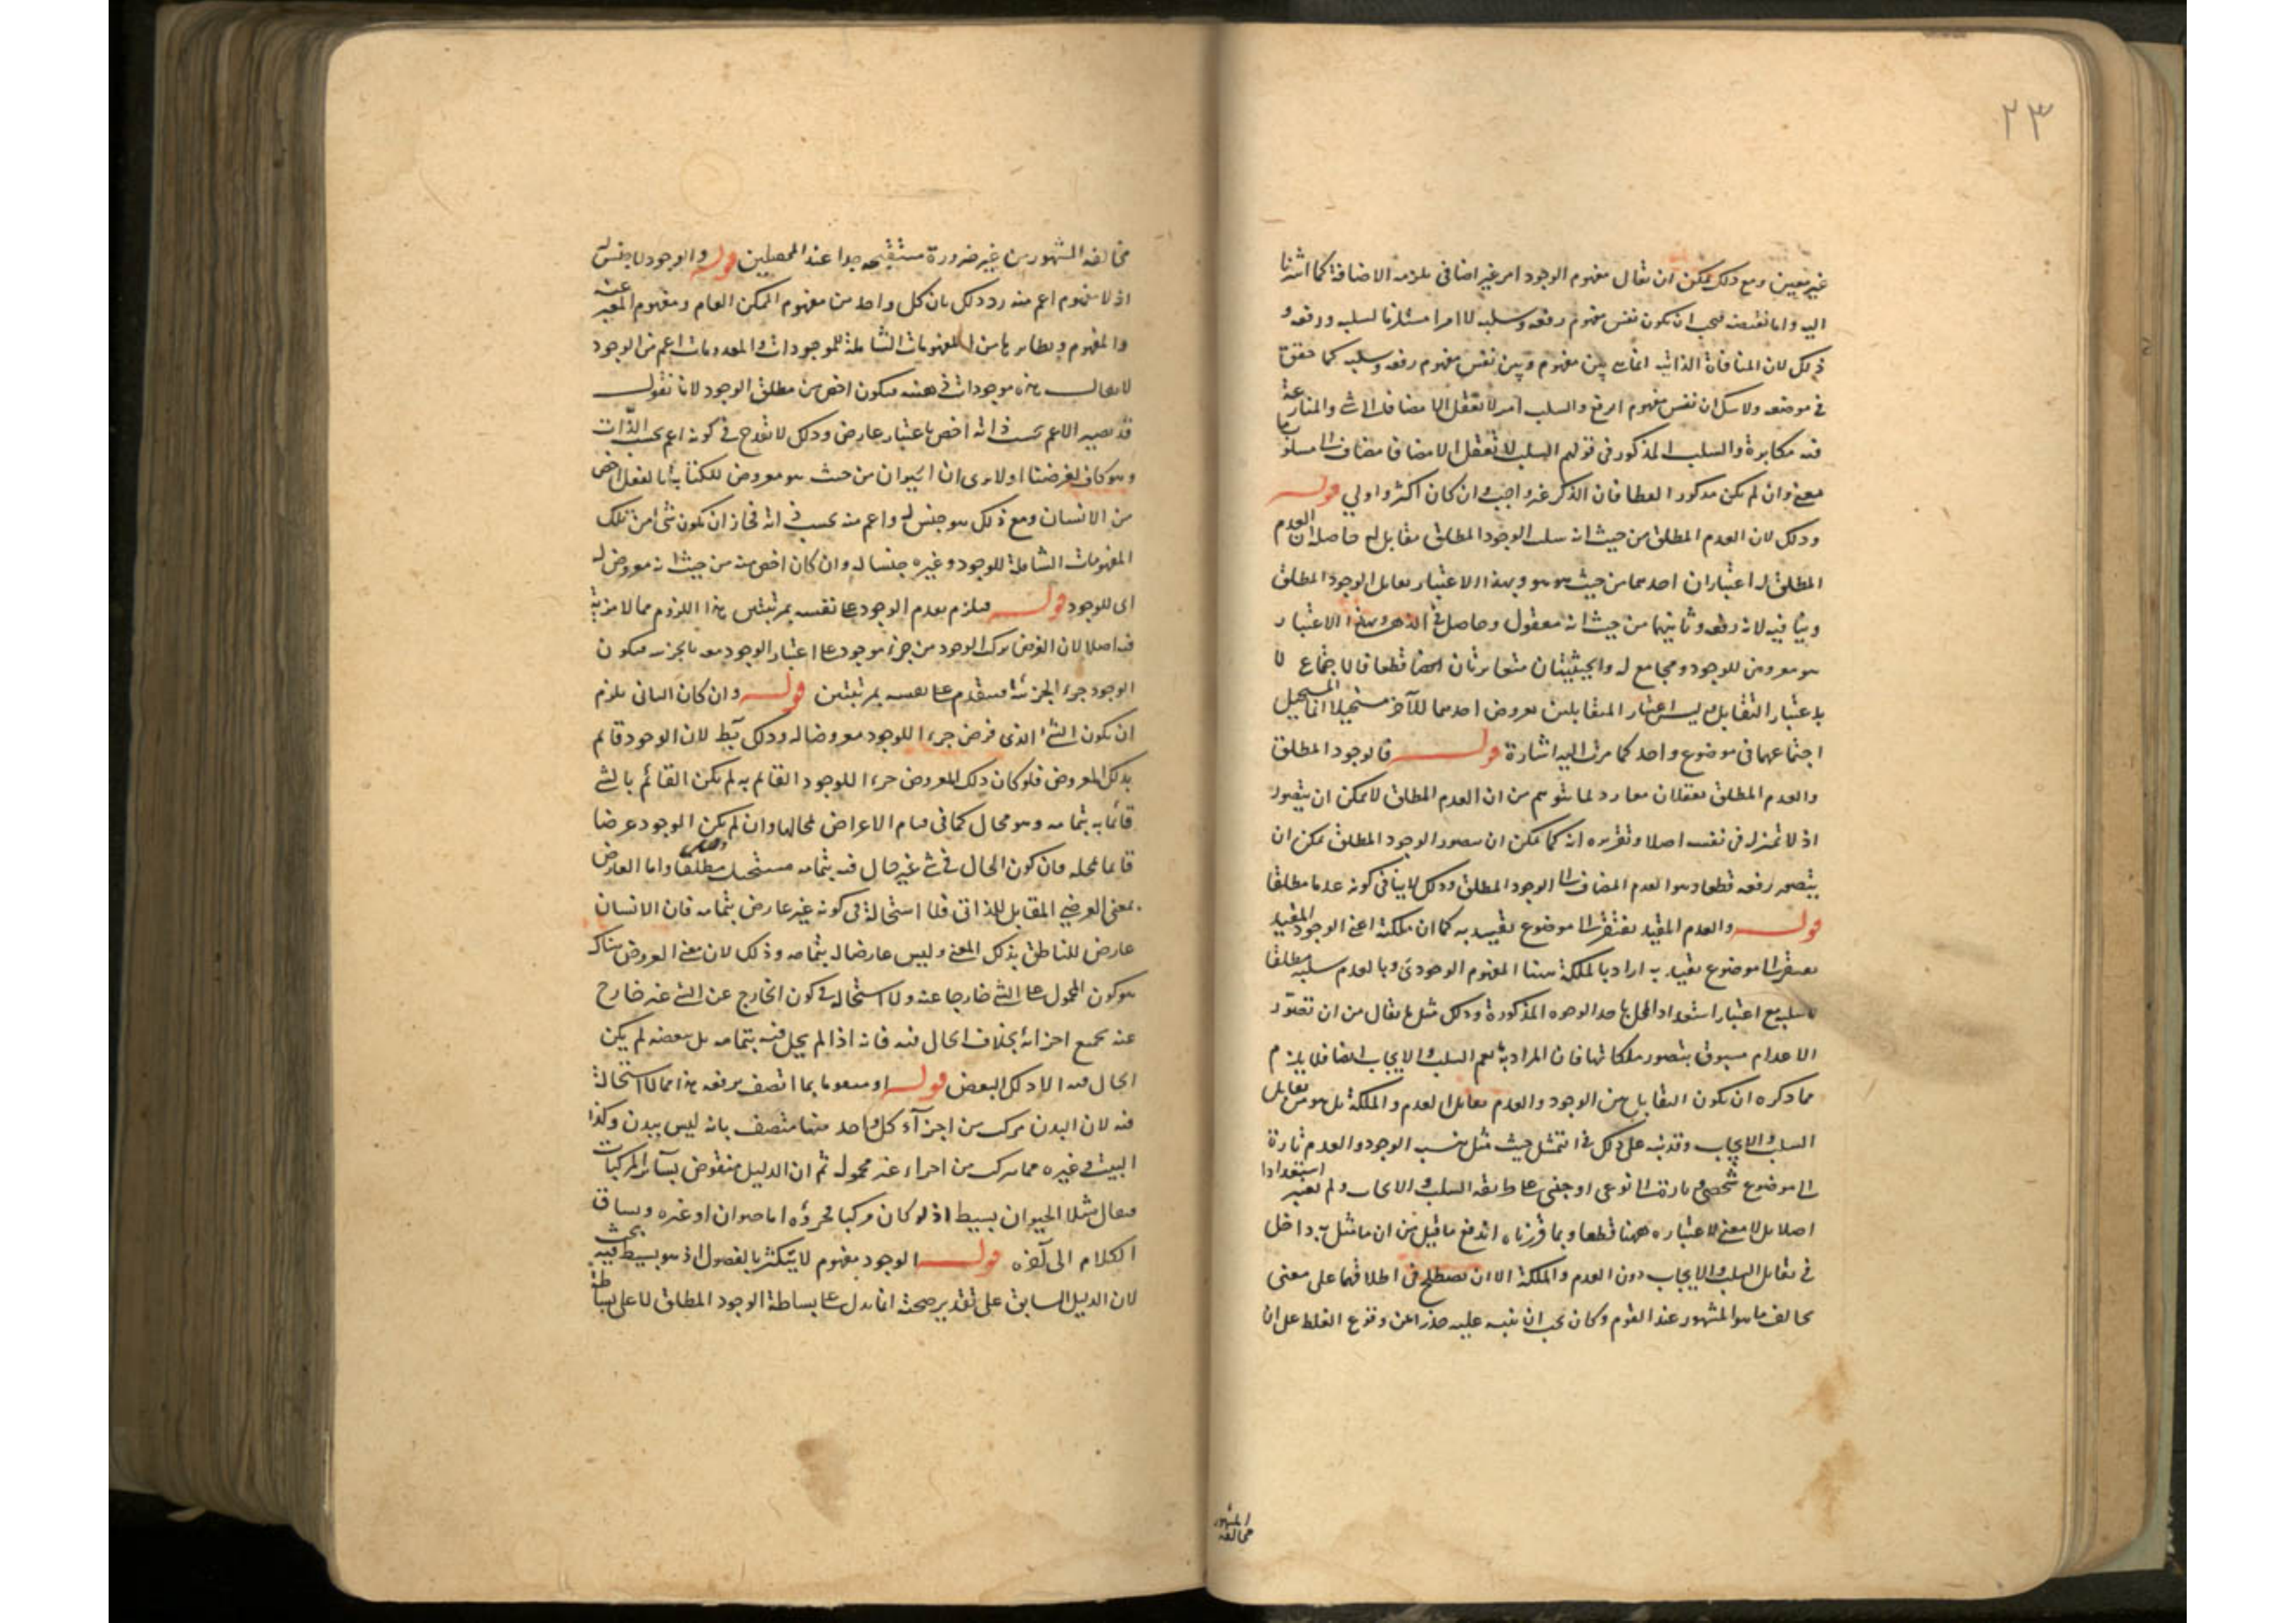 ٢٣
غير معين ومع ذلك يمكن ان يقال مفهوم الوجود امر غير اضافى يلزمه الاضافة كما اشرنا
اليه واما نقيضه فيجب ان يكون نفس مفهوم رفعه وسلبه لا امرا مستلزما لسلبه ورفعه و
ذلك لان المنافاة الذاتية انما هى بين مفهوم وبين نفس مفهوم رفعه وسلبه كما حقق
فى موضعه ولا شك ان نفس مفهوم الرفع والسلب امر لا يعقل الا مضافا الى شئ والمنازعة
فيه مكابرة والسلب المذكور فى قولهم السلب لا يعقل الا مضافا مضاف الى مسلوب ما
معنى وان لم يكن مذكورا لفظا فان الذكر غير واجب وان كان اكثر واولى قوله
وذلك لان العدم المطلق من حيث انه سلب الوجود المطلق مقابل له حاصله ان العدم
المطلق له اعتباران احدهما من حيث هو هو وبهذا الاعتبار يقابل الوجود المطلق
وينافيه لانه رفعه وثانيهما من حيث انه معقول وحاصل فى الذهن وبهذا الاعتبار
هو معروض للوجود ومجامع له والحيثيتان متغايرتان ايضا قطعا فالاجتماع لا
باعتبار التقابل وليس اعتبار المتقابلين بعروض احدهما للآخر مستحيلا انما المستحيل
اجتماعهما فى موضوع واحد كما مرت اليه اشارة قوله فالوجود المطلق
والعدم المطلق يعقلان معا رد لما يتوهم من ان العدم المطلق لا يمكن ان يتصور
اذ لا تميز له فى نفسه اصلا وتقريره انه كما يمكن ان يتصور الوجود المطلق يمكن ان
يتصور رفعه قطعا وهو العدم المضاف الى الوجود المطلق وذلك لا ينافى كونه عدما مطلقا
قوله والعدم المقيد يفتقر الى موضوع يقيد به كما ان ملكته اعنى الوجود المقيد
يفتقر الى موضوع يقيد به اراد بالملكة ههنا المفهوم الوجودى وبالعدم سلبه مطلقا
لا سلبه مع اعتبار استعداد المحل باحد الوجوه المذكورة وذلك مثل ما يقال من ان تصور
الاعدام مسبوق بتصور ملكاتها فان المراد به يعم السلب والايجاب ايضا فلا يلزم
مما ذكره ان يكون التقابل بين الوجود والعدم تقابل العدم والملكة بل هو من تقابل
السلب والايجاب وقد نبه على ذلك فى التمثيل حيث مثل بنسب الوجود والعدم تارة
الى موضوع شخصى وتارة الى نوعى او جنسى على طريقة السلب والايجاب ولم يعتبر استعدادا
اصلا بل لا معنى لاعتباره ههنا قطعا وبما قررناه اندفع ما قيل من ان ما مثل به داخل
فى تقابل السلب والايجاب دون العدم والملكة الا ان يصطلح فى اطلاقهما على معنى
يخالف ما هو المشهور عند القوم وكان يجب ان ينبه عليه حذرا عن وقوع الغلط على ان
مخالفة المشهور
مخالفة المشهور من غير ضرورة مستقبحة جدا عند المحصلين قوله والوجود لا جنس له
اذ لا مفهوم اعم منه رد ذلك بان كل واحد من مفهوم الممكن العام ومفهوم المعبر عنه
والمفهوم ونظائرها من المفهومات الشاملة للموجودات والمعدومات اعم من الوجود
لا يقال هذه موجودات فى الذهن فيكون اخص من مطلق الوجود لانا نقول
قد يصير الاعم بحسب ذاته اخص باعتبار عارض وذلك لا يقدح فى كونه اعم بحسب الذات
وهو كاف لغرضنا اولا يرى ان الحيوان من حيث هو معروض للكتابة بالفعل اخص
من الانسان ومع ذلك هو جنس له واعم منه بحسب ذاته فجاز ان يكون شئ من تلك
المفهومات الشاملة للوجود وغيره جنسا له وان كان اخص منه من حيث انه معروض له
اى للوجود قوله فيلزم تقدم الوجود على نفسه بمرتبتين هذا اللزوم مما لا مزية
فيه اصلا لان الفرض تركب الوجود من جزء موجود على اعتبار الوجود معه بالجزء فيكون
الوجود جزءا لجزئه فيتقدم على نفسه بمرتبتين قوله وان كان الثانى يلزم
ان يكون الشئ الذى فرض جزءا للوجود معروضا له وذلك بط لان الوجود قائم
بذلك المعروض فلو كان ذلك المعروض جزءا للوجود القائم به لم يكن القائم بالشئ
قائما به بتمامه وهو محال كما فى قيام الاعراض لمحالها وان لم يكن الوجود عرضا
قائما بمحله فان كون الحال فى شئ غير حال فيه بتمامه مستحيل مطلقا واما العارض
بمعنى العرضى المقابل للذاتى فلا استحالة فى كونه غير عارض بتمامه فان الانسان
عارض للناطق بذلك المعنى وليس عارضا له بتمامه وذلك لان معنى العروض هناك
هو كون المحمول على الشئ خارجا عنه ولا استحالة فى كون الخارج عن الشئ غير خارج
عنه بجميع اجزائه بخلاف الحال فيه فانه اذا لم يحل فيه بتمامه بل بعضه لم يكن
الحال فيه الا ذلك البعض قوله او معدوما بما اتصف برفعه هذا مما لا استحالة
فيه لان البدن مركب من اجزاء كل واحد منها متصف بانه ليس ببدن وكذا
البيت وغيره مما يتركب من اجزاء غير محمولة ثم ان الدليل منقوض بسائر المركبات
فيقال مثلا الحيوان بسيط اذ لو كان مركبا فجزؤه اما حيوان او غيره ويساق
الكلام الى آخره قوله الوجود مفهوم لا يتكثر بالفصول اذ هو بسيط فيه بحث
لان الدليل السابق على تقدير صحته انما يدل على بساطة الوجود المطلق لا على بساطة